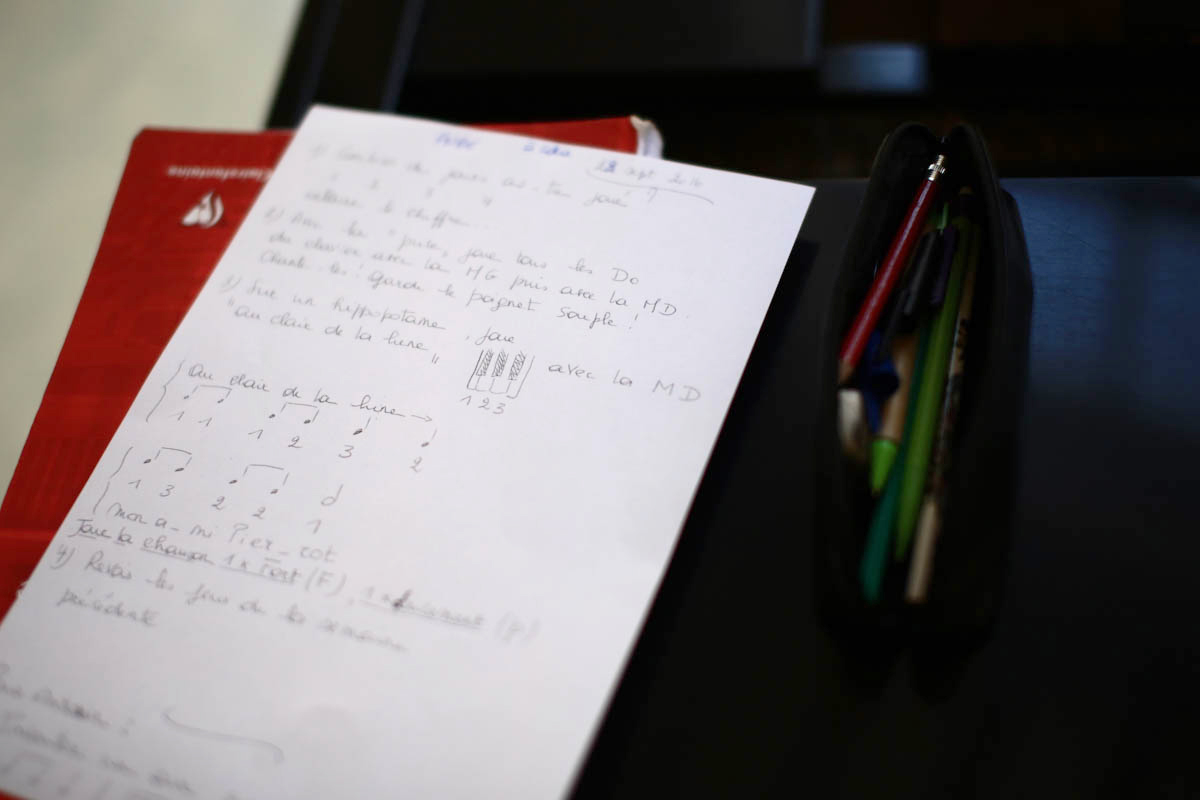 Clairefontaine
12 sept 2016
1) Combien de jours as-tu joué ?
1 2 3 4
entoure le chiffre...
2) Avec la "puce", joue tous les Do
du clavier avec la MG puis avec la MD.
chante-les ! Garde le poignet souple !
3) Sur un hippopotame, joue
"au clair de la lune"
avec la MD
1 2 3
Au clair de la lune →
1 1 1 2 3 2
1 3 2 2 1
mon a-mi Pier-rot
Joue la chanson 1x Fort (F), 1x doucement (p)
4) Revois les jeux de la semaine
précédente
: